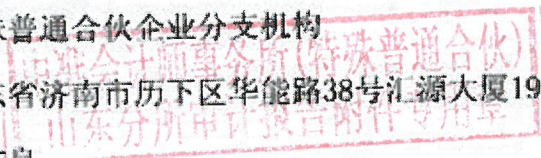 普通合伙企业分支机构
会计师事务所(特殊普通合伙)
省济南市历下区华能路38号汇源大厦19
山东分所审计报告附件专用章